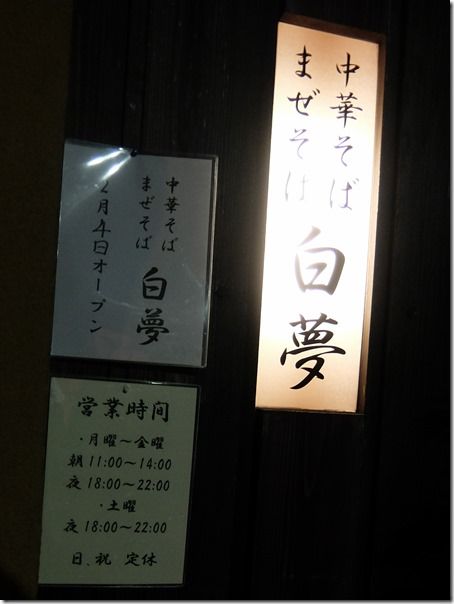 中華そば
まぜそば
白夢
中華そば
まぜそば
白夢
2月4日オープン
営業時間
・月曜～金曜
朝 11:00～14:00
夜 18:00～22:00
・土曜
夜 18:00～22:00
日、祝 定休